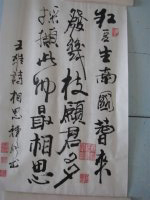 紅豆生南國春来
發幾枝願君多
採擷此物最相思
王維詩相思